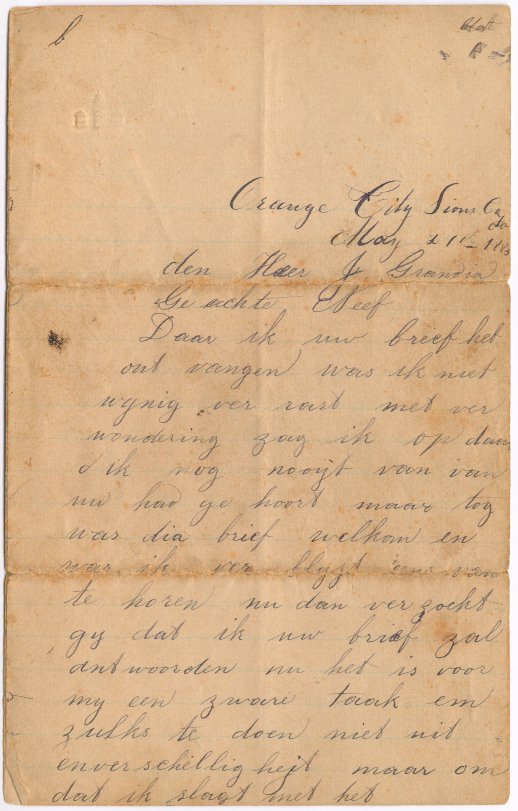 Orange City Sioux Co
May 21
den Heer A Grandia
Ge achte Neef
Daar ik uw breef heb
ont vangen was ik niet
wynig ver rast met ver
wondering zag ik op daar
ik nog nooijt van van
uw had ge hoort maar tog
was dia brief welkom en
was ik ver blyt eens van
te horen nu dan ver zocht
gy dat ik uw brief zal
antwoorden nu het is voor
my een zware taak em
zulks te doen niet uit
enverschellig heit maar om
dat ik slagt met het